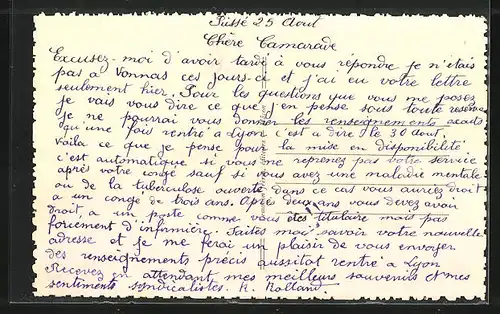 Sussé 25 Aout
Chère Camarade
Excusez-moi d'avoir tardé à vous répondre je n'étais
pas à Vonnas ces jours-ci et j'ai eu votre lettre
seulement hier. Pour les questions que vous me posez
je vais vous dire ce que j'en pense sous toute réserve
Je ne pourrai vous donner les renseignements exacts
qu'une fois rentré à Lyon c'est à dire le 30 Aout.
Voila ce que je pense pour la mise en disponibilité
c'est automatique si vous ne reprenez pas votre service
après votre congé sauf si vous avez une maladie mentale
ou de la tuberculose ouverte dans ce cas vous auriez droit
a un conge de trois ans. Après deux ans vous devez avoir
droit a un poste comme vous êtes titulaire mais pas
forcément d'infirmière. Faites moi savoir votre nouvelle
adresse et je me ferai un plaisir de vous envoyer
des renseignements précis aussitot rentré a Lyon
Recevez en attendant mes meilleurs souvenirs et mes
sentiments syndicalistes. R. Rolland.